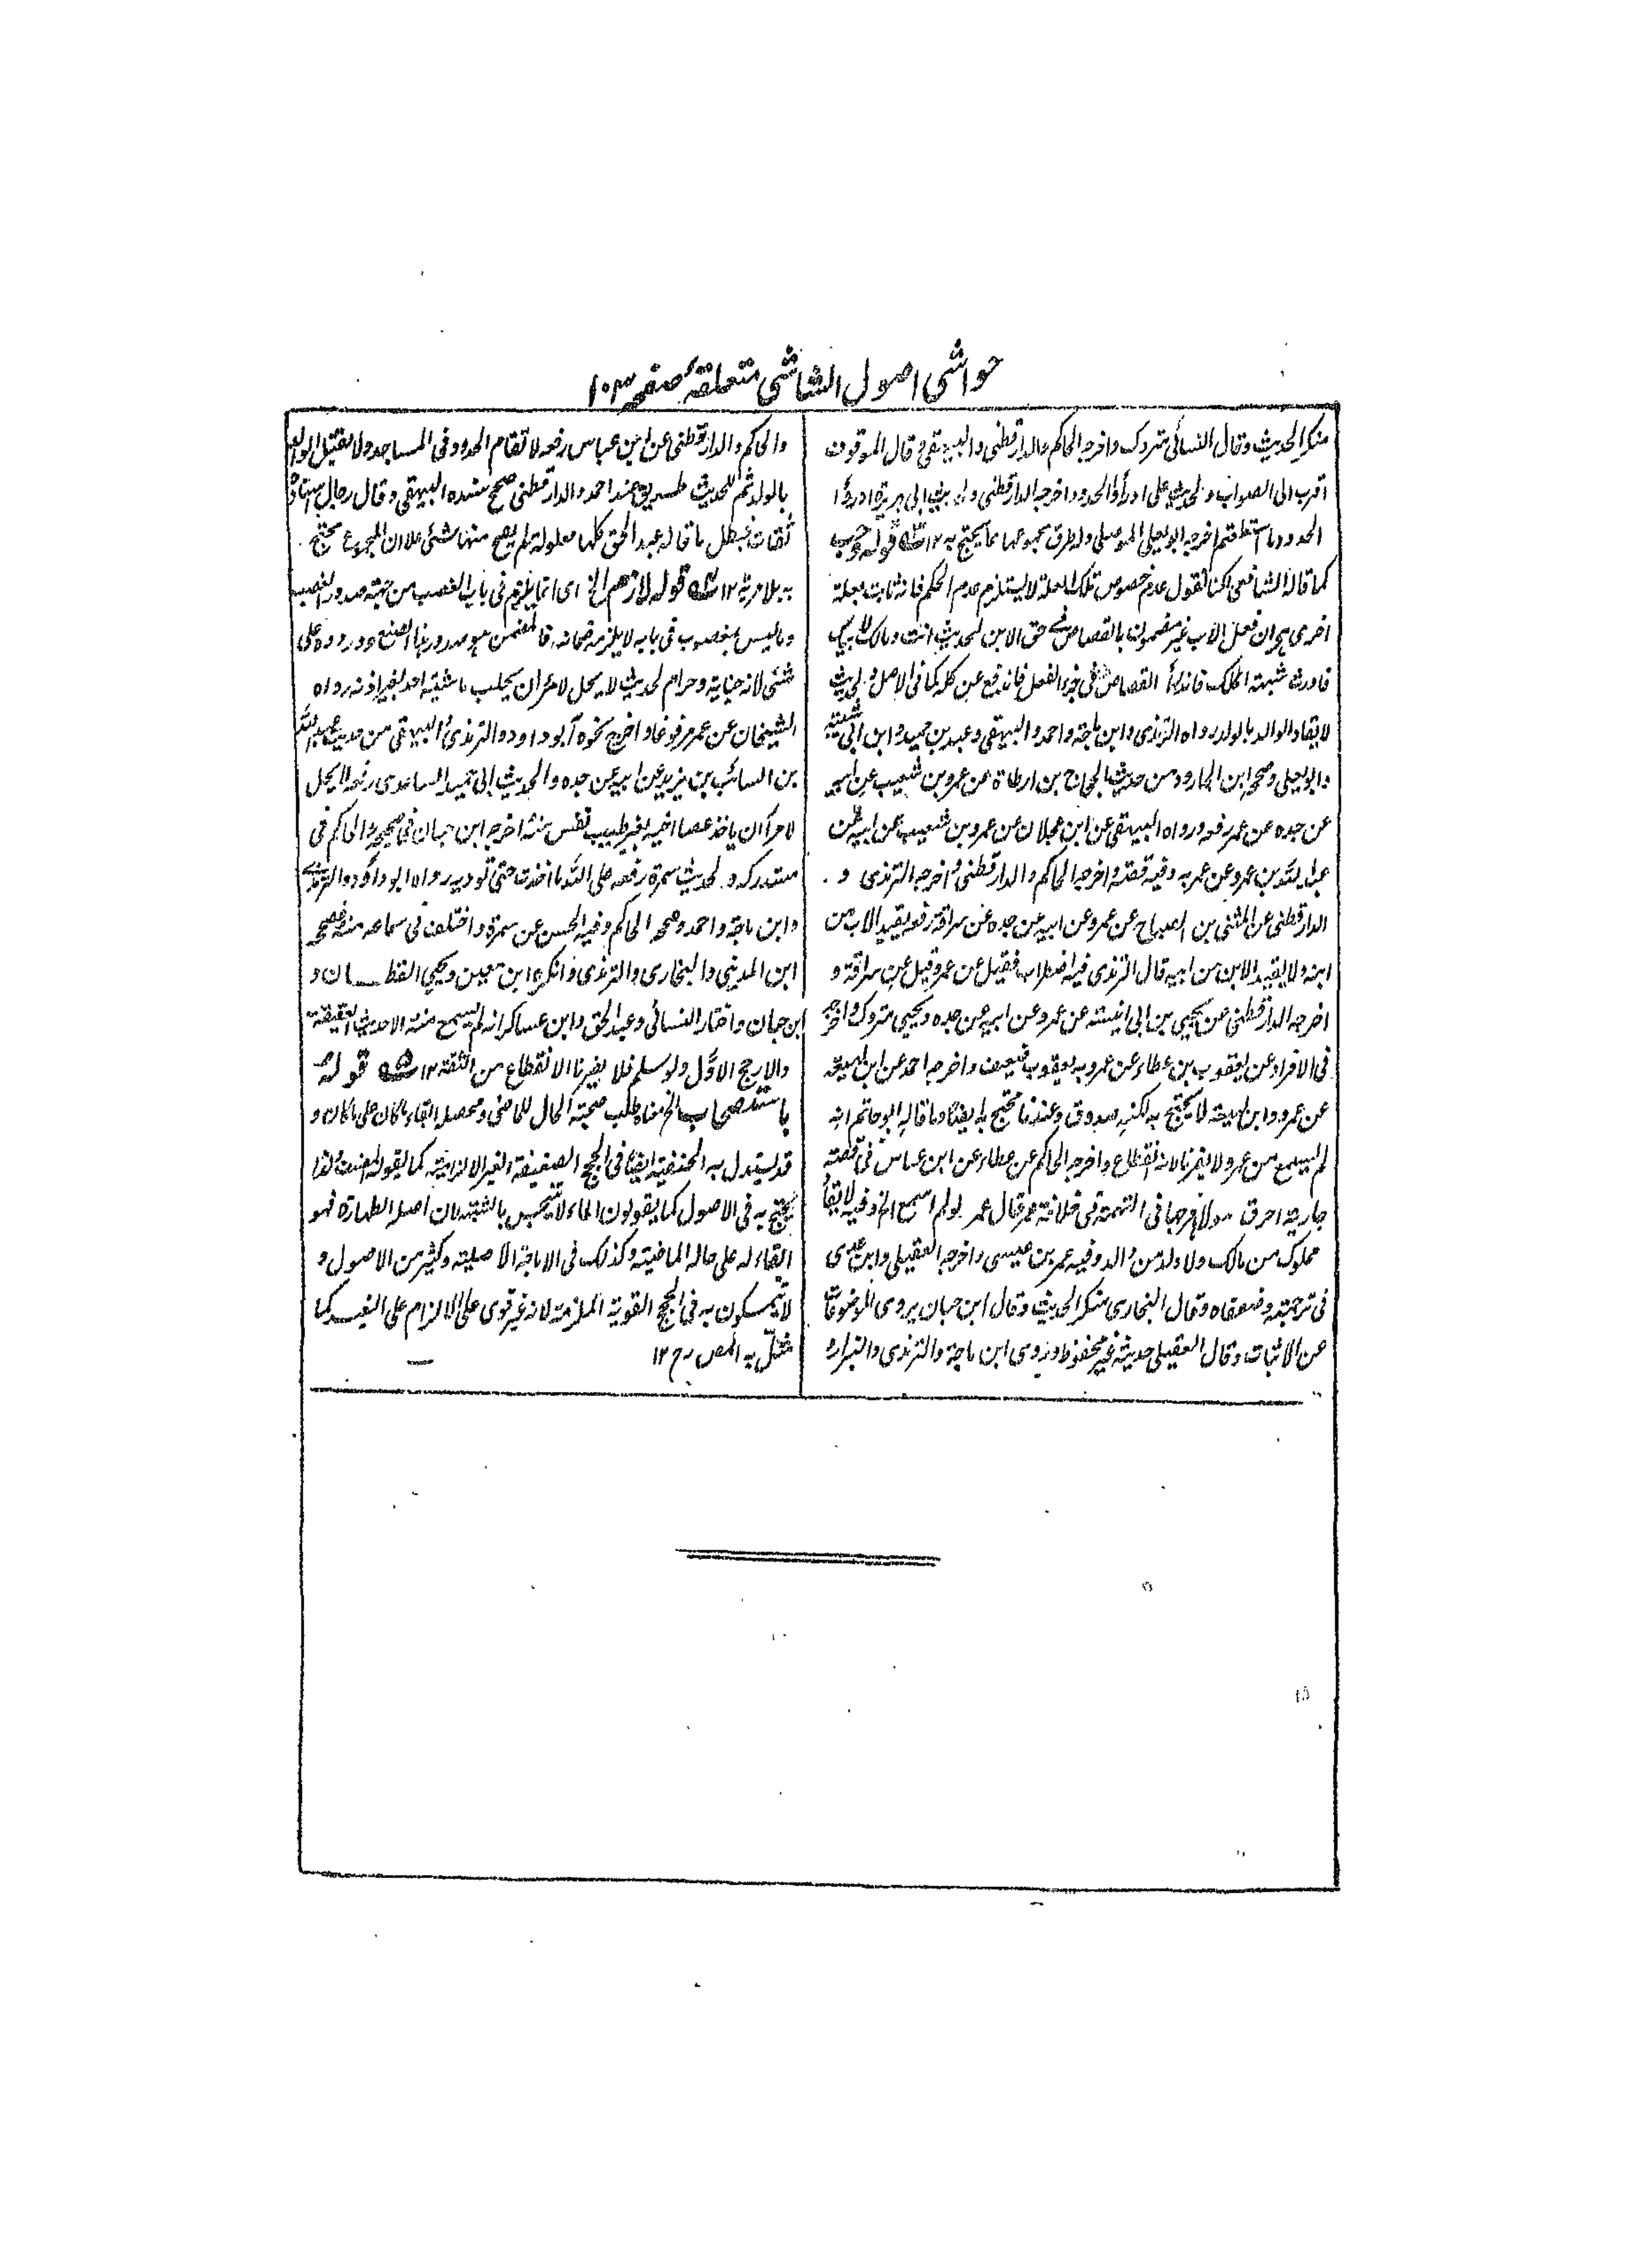 حواشی اصول الشاشی متعلقہ صفحہ ۱۰۳
منكر الحديث وقال النسائی متروك واخرجه الحاكم والدارقطنی والبيهقی وقال الموقوف
اقرب الی الصواب ولحديث علی ادرأوا الحدود اخرجه الدارقطنی ولحديث ابی هريرة ادرأوا
الحدود ما استطعتم اخرجه ابو يعلی الموصلی وله طرق بمجموعها مما يحتج به ١٢ قوله وجب
كما قاله الشافعی لكنا نقول عدم خصوص تلك العلة لا يستلزم عدم الحكم فانه ثابت بعلة
اخری هی ان فعل الاب غير مضمون بالقصاص فی حق الابن لحديث انت ومالك لابيك
فاورث شبهة الملك فاندرأ القصاص فی الفعل فاندفع عن كله كما فی الاصل ولحديث
لا يقاد الوالد بالولد رواه الترمذی وابن ماجة واحمد والبيهقی وعبد بن حميد وابن ابی شيبة
وابو يعلی وصححه ابن الجارود من حديث الحجاج بن ارطاة عن عمرو بن شعيب عن ابيه
عن جده عن عمر رفعه ورواه البيهقی عن ابن عجلان عن عمرو بن شعيب عن ابيه عن
عبد الله بن عمرو عن عمر به وفيه قصة واخرجه الحاكم والدارقطنی واخرجه الترمذی و
الدارقطنی عن المثنی بن الصباح عن عمرو عن ابيه عن جده عن سراقة رفعه يقيد الاب من
ابنه ولا يقيد الابن من ابيه قال الترمذی فيه اضطراب فقيل عن عمر وقيل عن سراقة و
اخرجه الدارقطنی عن يحيی بن ابی انيسة عن عمرو عن ابيه عن جده ويحيی متروك واخرجه
فی الافراد عن يعقوب بن عطاء عن عمرو به ويعقوب ضعيف واخرجه احمد عن ابن لهيعة
عن عمرو وابن لهيعة لا يحتج به لكنه صدوق وعندنا محتج به ايضا وما قاله ابو حاتم انه
لم يسمع من عمرو لا يضرنا لانه انقطاع واخرجه الحاكم عن عطاء عن ابن عباس فی قصة
جارية احرق مولاها فرجها فی التهمة فی خلافة عمر قال عمر لو لم اسمع الخ وفيه لا يقاد
مملوك من مالك ولا ولد من والد وفيه عمر بن عيسی واخرجه العقيلی وابن عدی
فی ترجمته وضعفاه وقال البخاری منكر الحديث وقال ابن حبان يروی الموضوعات
عن الاثبات وقال العقيلی حديثه غير محفوظ وروی ابن ماجة والترمذی والبزار
والحاكم والدارقطنی عن ابن عباس رفعه لا تقام الحدود فی المساجد ولا يقتل الوالد
بالولد ثم للحديث طريق عند احمد والدارقطنی صحح سنده البيهقی وقال رجال اسناده
ثقات فبطل ما قاله عبد الحق كلها معلولة لم يصح منها شئی علا ان المجموع محتج
به بلا مرية ١٢ قوله لازم الخ ای انما يلزم فی باب الغصب من جهة صدور الغصب
وما ليس بغصوب فی بابه لا يلزم ضمانه فالمضمن هو صدور هذا الصنع وورده علی
شئی لانه جناية وحرام لحديث لا يحل لامرئ ان يحلب ماشية احد بغير اذنه رواه
الشيخان عن عمر مرفوعا واخرج نحوه ابو داود والترمذی والبيهقی من حديث عبد الله
بن السائب بن يزيد عن ابيه عن جده والحديث ابی حميد الساعدی رفعه لا يحل
لامرأ ان ياخذ عصا اخيه بغير طيب نفس منه اخرجه ابن حبان فی صحيحه والحاكم فی
مستدركه ولحديث سمرة رفعه علی اليد ما اخذت حتی تودیه رواه ابو داؤد والترمذی
وابن ماجة واحمد وصححه الحاكم وفيه الحسن عن سمرة واختلف فی سماعه منه فصححه
ابن المدينی والبخاری والترمذی وانكره ابن معين ويحيی القطان و
ابن حبان واختار النسائی وعبد الحق وابن عساكر انه لم يسمع منه الا حديث العقيقة
والارجح الاول ولو سلم فلا يضرنا الانقطاع من الثقة ١٢ قوله
باستصحاب الخ هنا طلب صحبة الحال للماضی ومحصله ابقاء ما كان علی ما كان و
قد يستدل به الحنفية ايضا فی الحجج الضعيفة الغير الالزامية كما يقوله المصنف
يحتج به فی الاصول كما يقولون الماء لا يتنجس بالشبهة لان اصله الطهارة فهو
ابقاء له علی حاله الماضية وكذلك فی الاباحة الاصلية وكثير من الاصول و
لا يتمسكون به فی الحجج القوية الملزمة لانه غير قوی علی الالزام علی الغير كما
مثل به المص رح ١٢